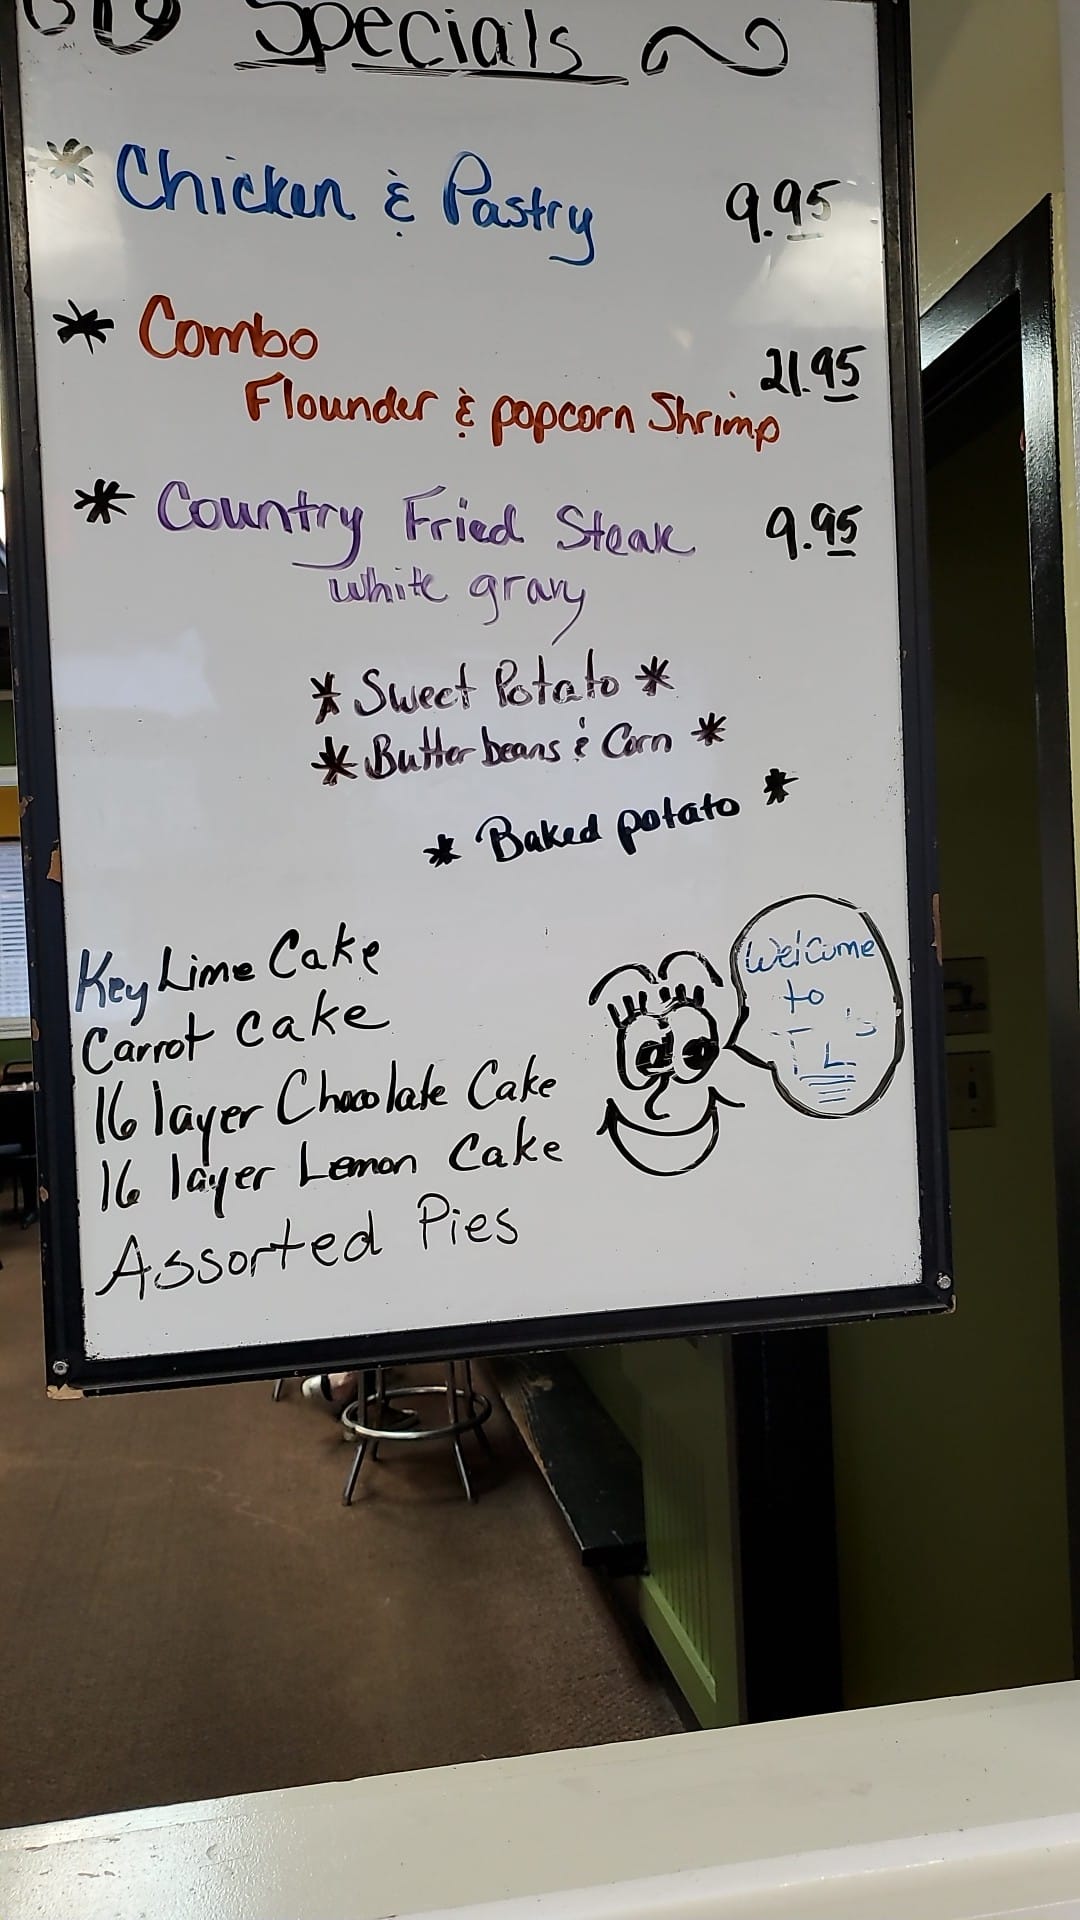 Specials
* Chicken & Pastry 9.95
* Combo 21.95
Flounder & popcorn Shrimp
* Country Fried Steak 9.95
white gravy
* Sweet Potato *
* Butter beans & Corn *
* Baked potato *
Key Lime Cake
Carrot Cake
16 layer Chocolate Cake
16 layer Lemon Cake
Assorted Pies
Welcome
to